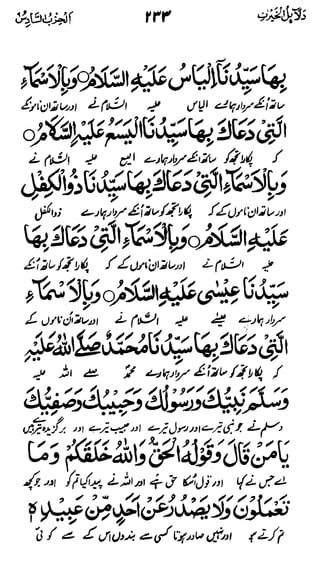 دَلَائِلُ الْخَيْرَاتِ ۲۳۳ اَلْحِزْبُ السَّادِسُ
بِهَا سَيِّدُنَآ اِلْيَاسُ عَلَيْهِ السَّلَامُ ○ وَبِالْاَسْمَآءِ
ساتھ اُنکے سردار ہمارے الیاس علیہ السّلام نے اور ساتھ ان ناموں کے
الَّتِيْ دَعَاكَ بِهَا سَيِّدُنَا الْيَسَعُ عَلَيْهِ السَّلَامُ ○
کہ پکارا تجھ کو ساتھ انکے سردار ہمارے الیسع علیہ السّلام نے
وَبِالْاَسْمَآءِ الَّتِيْ دَعَاكَ بِهَا سَيِّدُنَا ذُو الْكِفْلِ
اور ساتھ ان ناموں کے کہ پکارا تجھ کو ساتھ اُنکے سردار ہمارے ذو الکفل
عَلَيْهِ السَّلَامُ ○ وَبِالْاَسْمَآءِ الَّتِيْ دَعَاكَ بِهَا
علیہ السّلام نے اور ساتھ ان ناموں کے کہ پکارا تجھ کو ساتھ اُنکے
سَيِّدُنَا عِيْسٰى عَلَيْهِ السَّلَامُ ○ وَبِالْاَسْمَآءِ
سردار ہمارے عیسٰے علیہ السّلام نے اور ساتھ اُن ناموں کے
الَّتِيْ دَعَاكَ بِهَا سَيِّدُنَا مُحَمَّدٌ صَلَّى اللهُ عَلَيْهِ
کہ پکارا تجھ کو ساتھ اُنکے سردار ہمارے محمدؐ صلے اللہ علیہ
وَسَلَّمَ نَبِيُّكَ وَرَسُوْلُكَ وَحَبِيْبُكَ وَصَفِيُّكَ
وسلم نے جو نبی تیرے اور رسول تیرے اور حبیب تیرے اور برگزیدہ تیرے ہیں
يَا مَنْ قَالَ وَقَوْلُهُ الْحَقُّ وَاللهُ خَلَقَكُمْ وَمَا
اے جس نے کہا اور قول اُسکا حق ہے اور اللہ نے پیدا کیا تم کو اور جو کچھ
تَعْمَلُوْنَ وَلَا يَصْدُرُ عَنْ اَحَدٍ مِّنْ عَبِيْدِهٖ
تم کرتے ہو اور نہیں صادر ہوتا کسی سے بندوں اُس کے سے کوئی